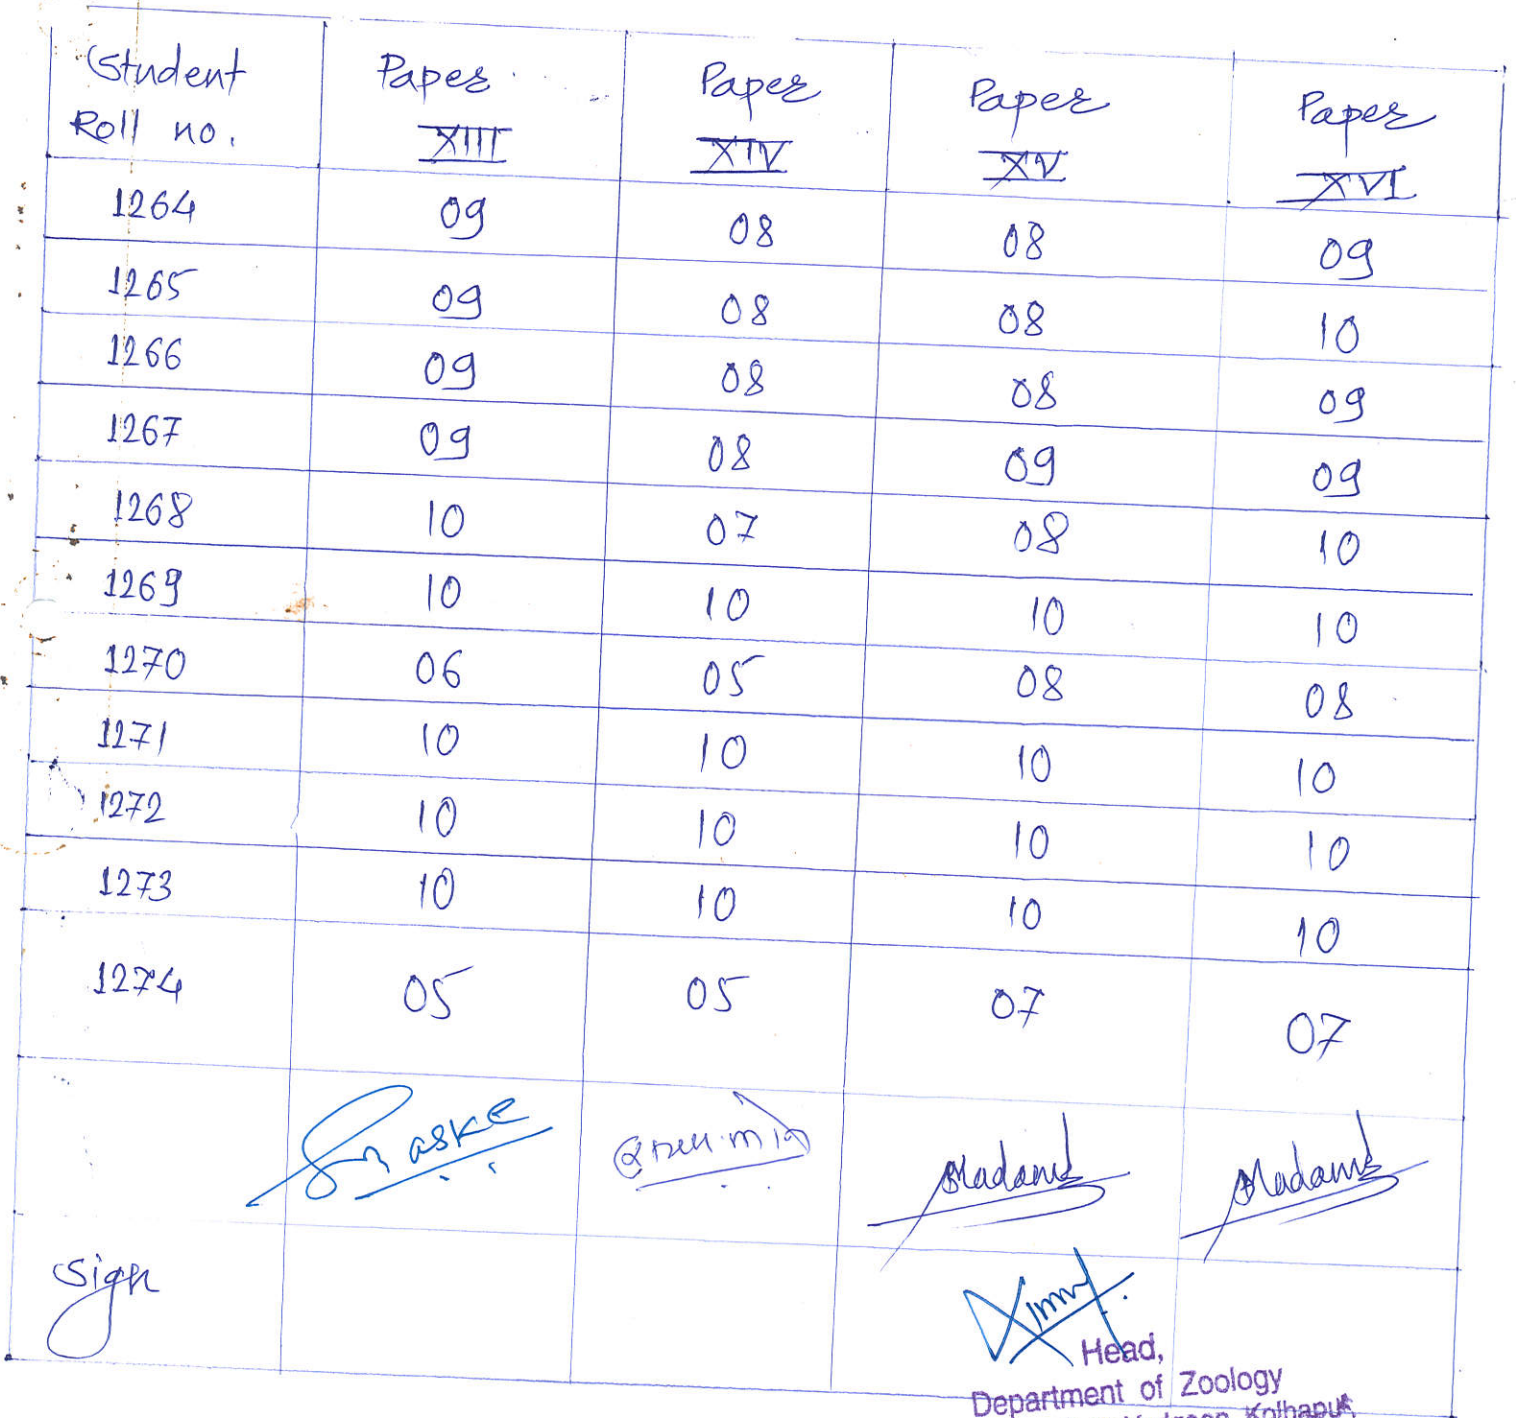 Student Roll no. Paper XIII Paper XIV Paper XV Paper XVI
1264 09 08 08 09
1265 09 08 08 10
1266 09 08 08 09
1267 09 08 09 09
1268 10 07 08 10
1269 10 10 10 10
1270 06 05 08 08
1271 10 10 10 10
1272 10 10 10 10
1273 10 10 10 10
1274 05 05 07 07
Sign
Head,
Department of Zoology
Kolhapur